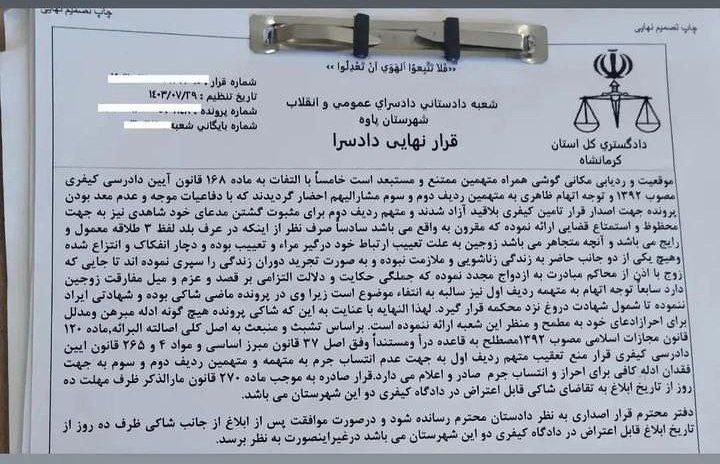 چاپ تصمیم نهایی
چاپ تصمیم نهایی
«‹فَلا تَتَّبِعوُا اَلهَوَی اَنْ تَعْدِلُوا ››
شعبه دادستانی دادسرای عمومی و انقلاب
شهرستان پاوه
قرار نهایی دادسرا
شماره قرار
تاریخ تنظیم : ۱۴۰۳/۰۷/۲۹
شماره پرونده
شماره بایگانی شعبه
دادگستری کل استان
کرمانشاه
موقعیت و ردیابی مکانی گوشی همراه متهمین ممتنع و مستبعد است خامساً با التفات به ماده ۱۶۸ قانون آیین دادرسی کیفری
مصوب ۱۳۹۲ و توجه اتهام ظاهری به متهمین ردیف دوم و سوم مشارالیهم احضار گردیدند که با دفاعیات موجه و عدم معد بودن
پرونده جهت اصدار قرار تامین کیفری بلاقید آزاد شدند و متهم ردیف دوم برای مثبوت گشتن مدعای خود شاهدی نیز به جهت
محظوظ و استمتاع قضایی ارائه نموده که مقرون به واقع می باشد سادساً صرف نظر از اینکه در عرف بلد لفظ ۳ طلاقه معمول و
رایج می باشد و آنچه متجاهر می باشد زوجین به علت تعییب ارتباط خود درگیر مراء و تعییب بوده و دچار انفکاک و انتزاع شده
وهیچ یکی از دو جانب حاضر به زندگی زناشویی و ملازمت نبوده و به صورت تجرید دوران زندگی را سپری نموده اند تا جایی که
زوج با اذن از محاکم مبادرت به ازدواج مجدد نموده که جملگی حکایت و دلالت التزامی بر قصد و عزم و میل مفارقت زوجین
دارد سابعاً توجه اتهام به متهمه ردیف اول نیز سالبه به انتفاء موضوع است زیرا وی در پرونده ماضی شاکی بوده و شهادتی ایراد
ننموده تا شمول شهادت دروغ نزد محکمه قرار گیرد. لهذا النهایه با عنایت به این که شاکی پرونده هیچ گونه ادله مبرهن ومدلل
برای احرازادعای خود به مطمح و منظر این شعبه ارائه ننموده است. براساس تشبث و منبعث به اصل کلی اصالته البرائه،ماده ۱۲۰
قانون مجازات اسلامی مصوب ۱۳۹۲مصطلح به قاعده درأ ومستنداً وفق اصل ۳۷ قانون مبرز اساسی و مواد ۴ و ۲۶۵ قانون ایین
دادرسی کیفری قرار منع تعقیب متهم ردیف اول به جهت عدم انتساب جرم به متهمه و متهمین ردیف دوم و سوم به جهت
فقدان ادله کافی برای احراز و انتساب جرم صادر و اعلام می دارد.قرار صادره به موجب ماده ۲۷۰ قانون مارالذکر ظرف مهلت ده
روز از تاریخ ابلاغ به تقاضای شاکی قابل اعتراض در دادگاه کیفری دو این شهرستان می باشد.
دفتر محترم قرار اصداری به نظر دادستان محترم رسانده شود و درصورت موافقت پس از ابلاغ از جانب شاکی ظرف ده روز از
تاریخ ابلاغ قابل اعتراض در دادگاه کیفری دو این شهرستان می باشد درغیراینصورت به نظر برسد.